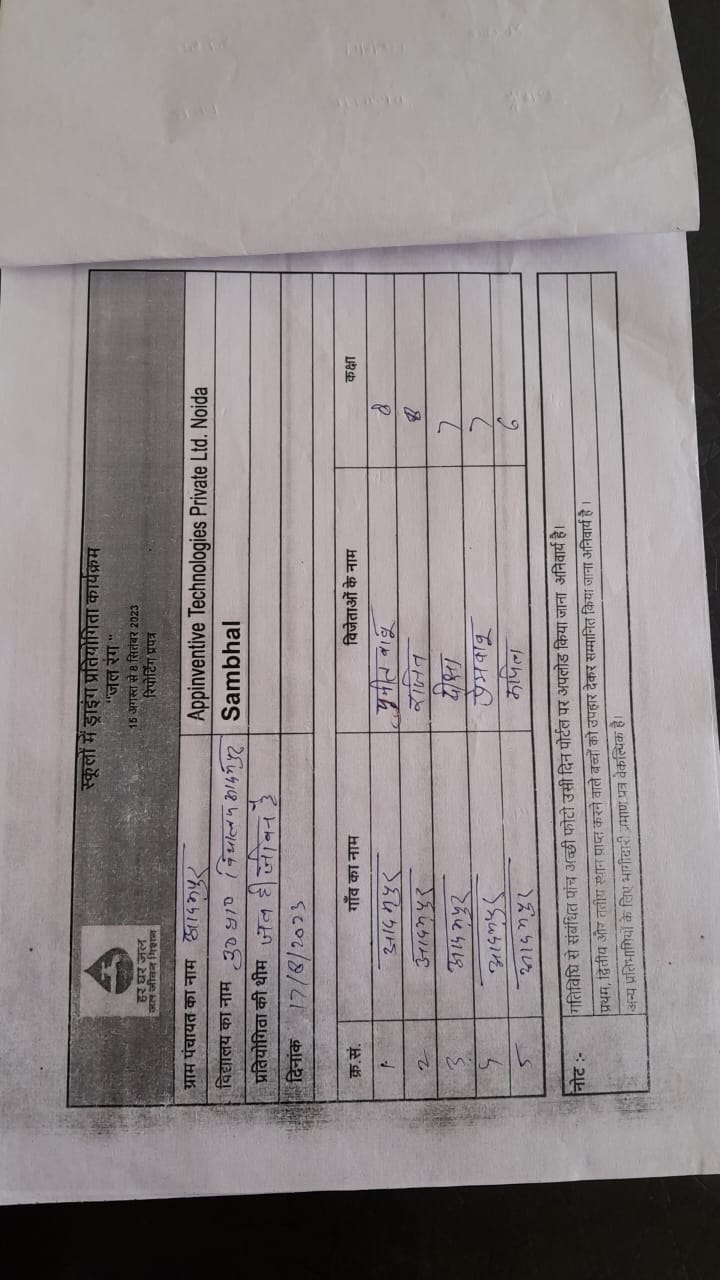 स्कूलों में ड्राइंग प्रतियोगिता कार्यक्रम
"जल रंग"
15 अगस्त से 8 सितंबर 2023
रिपोर्टिंग प्रपत्र
हर घर जल
जल जीवन मिशन
ग्राम पंचायत का नाम आदमपुर Appinventive Technologies Private Ltd. Noida
विद्यालय का नाम उ० प्रा० विद्यालय आदमपुर Sambhal
प्रतियोगिता की थीम जल ही जीवन है
दिनांक 17/8/2023
क्र.सं. गाँव का नाम विजेताओं के नाम कक्षा
1 आदमपुर 8
2 आदमपुर 8
3 आदमपुर दीक्षा 7
4 आदमपुर प्रेमबाबू 7
5 आदमपुर कपिल 6
नोट :- गतिविधि से संबंधित पांच अच्छी फोटो उसी दिन पोर्टल पर अपलोड किया जाना अनिवार्य है।
प्रथम, द्वितीय और तृतीय स्थान प्राप्त करने वाले बच्चों को उपहार देकर सम्मानित किया जाना अनिवार्य है।
अन्य प्रतिभागियों के लिए भागीदारी प्रमाण पत्र वैकल्पिक है।